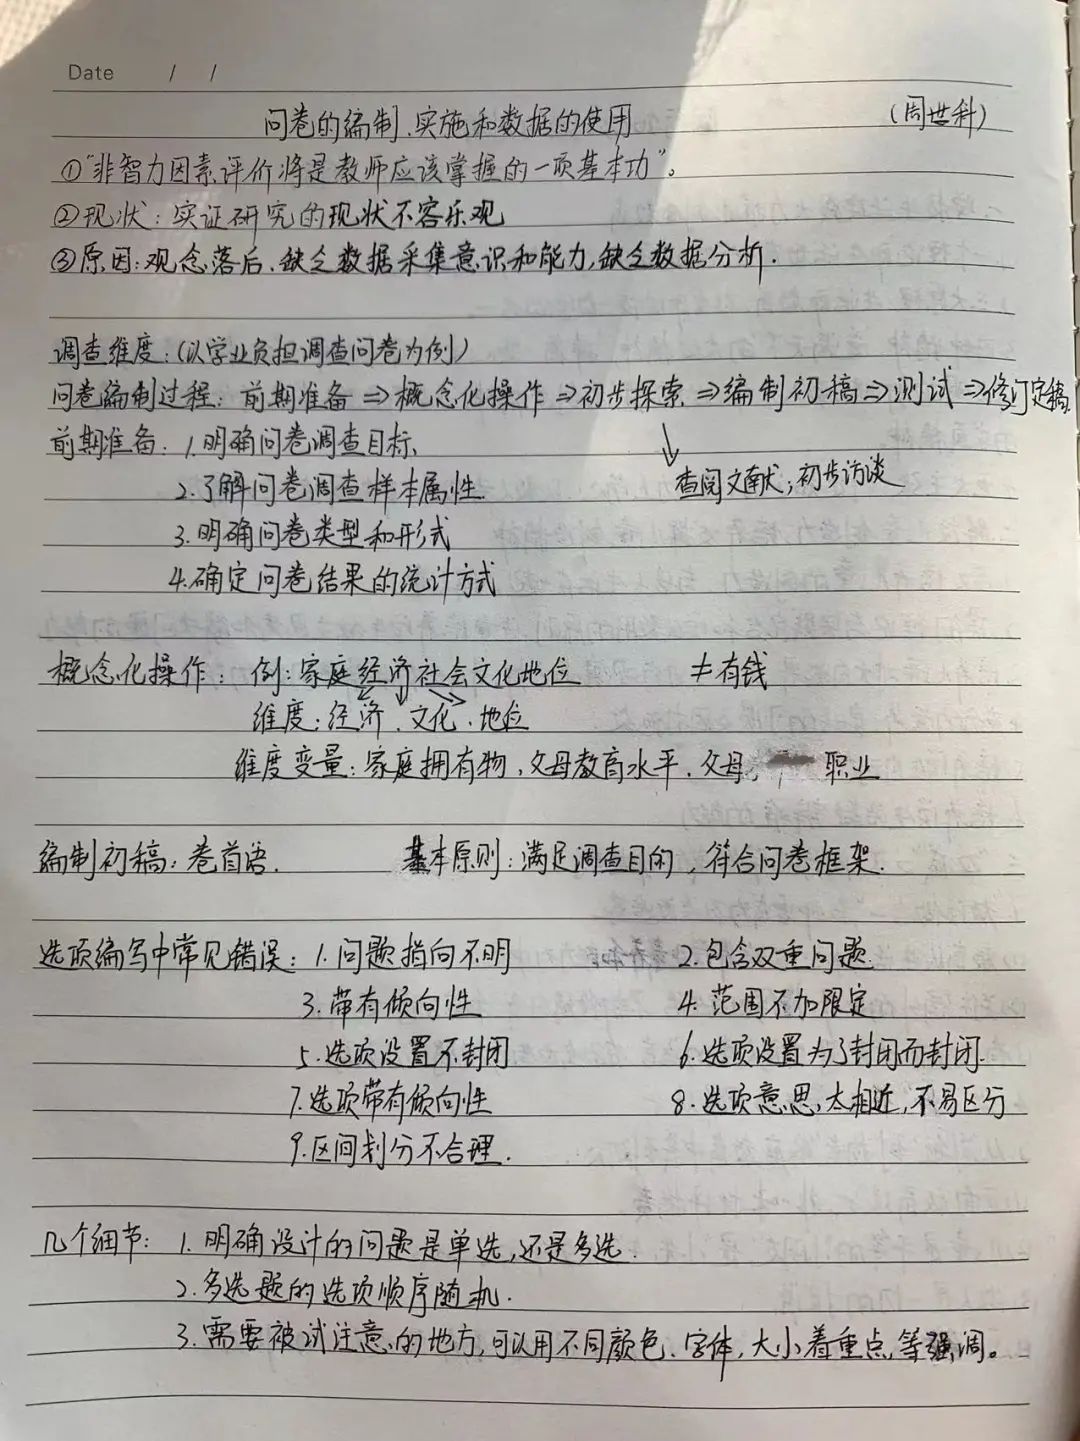 Date / /
问卷的编制、实施和数据的使用 (周世科)
①“非智力因素评价将是教师应该掌握的一项基本功”。
②现状：实证研究的现状不容乐观
③原因：观念落后、缺乏数据采集意识和能力，缺乏数据分析.
调查维度：(以学业负担调查问卷为例)
问卷编制过程：前期准备⇒概念化操作⇒初步探索⇒编制初稿⇒测试⇒修订定稿
前期准备：1.明确问卷调查目标
↓
查阅文献；初步访谈
2.了解问卷调查样本属性
3.明确问卷类型和形式
4.确定问卷结果的统计方式
概念化操作：例：家庭经济社会文化地位 ≠有钱
维度：经济、文化、地位
维度变量：家庭拥有物，父母教育水平、父母职业
编制初稿：卷首语. 基本原则：满足调查目的，符合问卷框架.
选项编写中常见错误：1.问题指向不明 2.包含双重问题
3.带有倾向性 4.范围不加限定
5.选项设置不封闭 6.选项设置为了封闭而封闭.
7.选项带有倾向性 8.选项意思，太相近，不易区分
9.区间划分不合理.
几个细节：1.明确设计的问题是单选，还是多选.
2.多选题的选项顺序随机.
3.需要被试注意的地方，可以用不同颜色、字体，大小着重点，等强调。